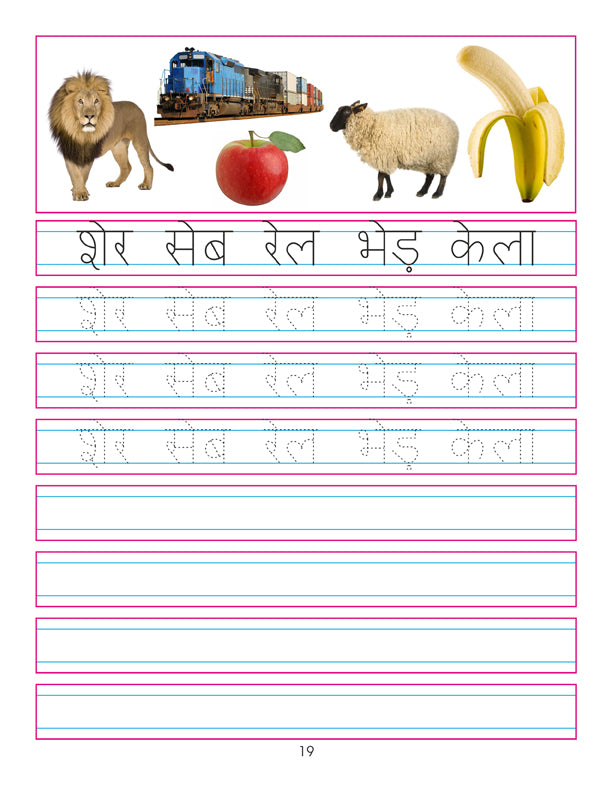 शेर सेब रेल भेड़ केला
शेर सेब रेल भेड़ केला
शेर सेब रेल भेड़ केला
शेर सेब रेल भेड़ केला
19